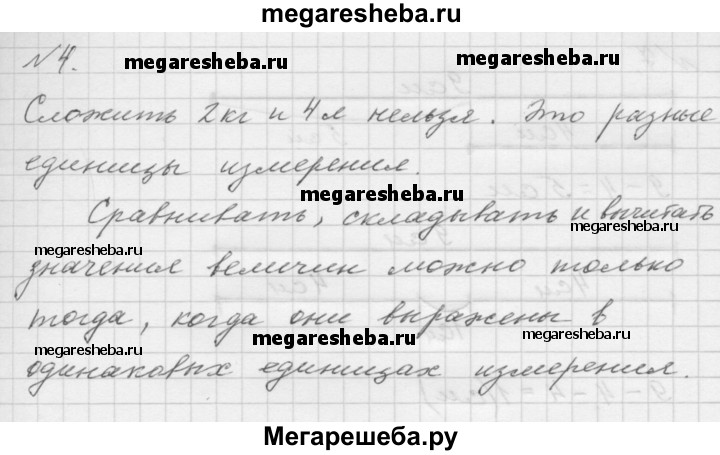 megaresheba.ru
№4. megaresheba.ru megaresheba.ru
Сложить 2кг и 4л нельзя. Это разные
единицы измерения.
megaresheba.ru
Сравнивать, складывать и вычитать
megaresheba.ru
значения величин можно только
тогда, когда они выражены в
megaresheba.ru megaresheba.ru megaresheba.ru
одинаковых единицах измерения.
Мегарешеба.ру